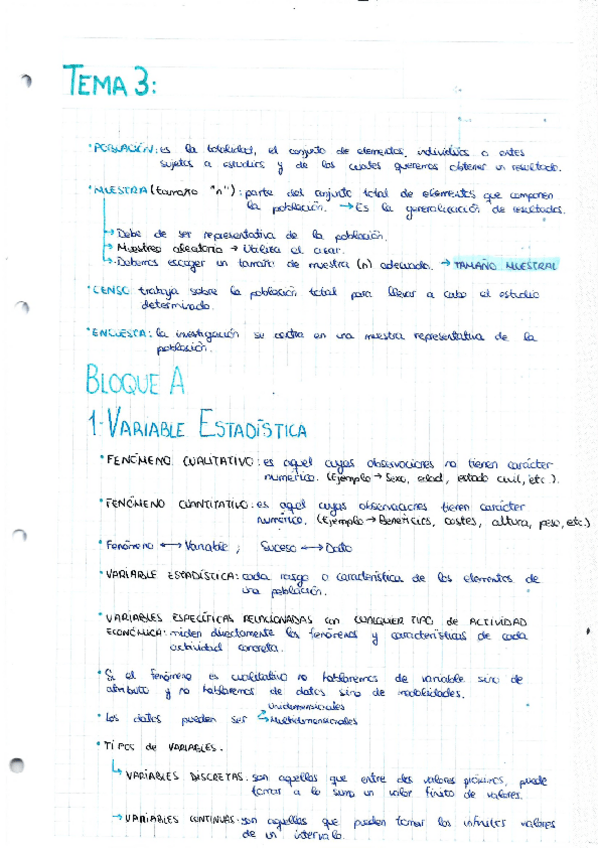 TEMA 3:
· POBLACIÓN: es la totalidad, el conjunto de elementos, individuos o entes
sujetos a estudios y de los cuales queremos obtener un resultado.
· MUESTRA (tamaño "n"): parte del conjunto total de elementos que componen
la población. → Es la generalización de resultados.
→ Debe de ser representativa de la población.
→ Muestreo aleatorio → Utiliza el azar.
→ Debemos escoger un tamaño de muestra (n) adecuado. → TAMAÑO MUESTRAL
· CENSO trabaja sobre la población total para llevar a cabo el estudio
determinado.
· ENCUESTA: la investigación se centra en una muestra representativa de la
población.
BLOQUE A
1- VARIABLE ESTADÍSTICA
· FENÓMENO CUALITATIVO: es aquel cuyas observaciones no tienen carácter
numérico. (Ejemplo → Sexo, edad, estado civil, etc.).
· FENÓMENO CUANTITATIVO: es aquel cuyas observaciones tienen carácter
numérico. (Ejemplo → Beneficios, costes, altura, peso, etc.)
· Fenómeno ↔ Variable ; Suceso ↔ Dato
· VARIABLE ESTADÍSTICA: cada rasgo o característica de los elementos de
una población.
· VARIABLES ESPECÍFICAS RELACIONADAS con CUALQUIER TIPO de ACTIVIDAD
ECONÓMICA: miden directamente los fenómenos y características de cada
actividad concreta.
· Si el fenómeno es cualitativo no hablaremos de variable sino de
atributo y no hablaremos de datos sino de modalidades.
Unidimensionales
· Los datos pueden ser → Multidimensionales
· TIPOS de VARIABLES.
↳ VARIABLES DISCRETAS. son aquellas que entre dos valores próximos, puede
tomar a lo sumo un valor finito de valores.
→ VARIABLES CONTINUAS: son aquellas que pueden tomar los infinitos valores
de un intervalo.